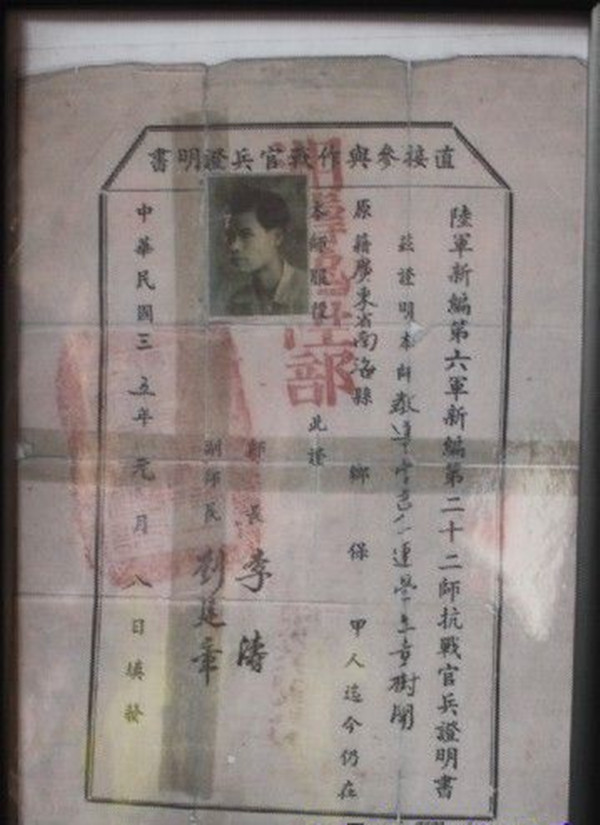 直接參與作戰官兵證明書
陸軍新編第六軍新編第二十二師抗戰官兵證明書
茲證明本師教導 連學生 樹開
原籍廣東省南海縣 鄉 保 甲人迄今仍在
本師服役 此證
師長 李濤
副師長 劉建章
中華民國三五年元月八日填發